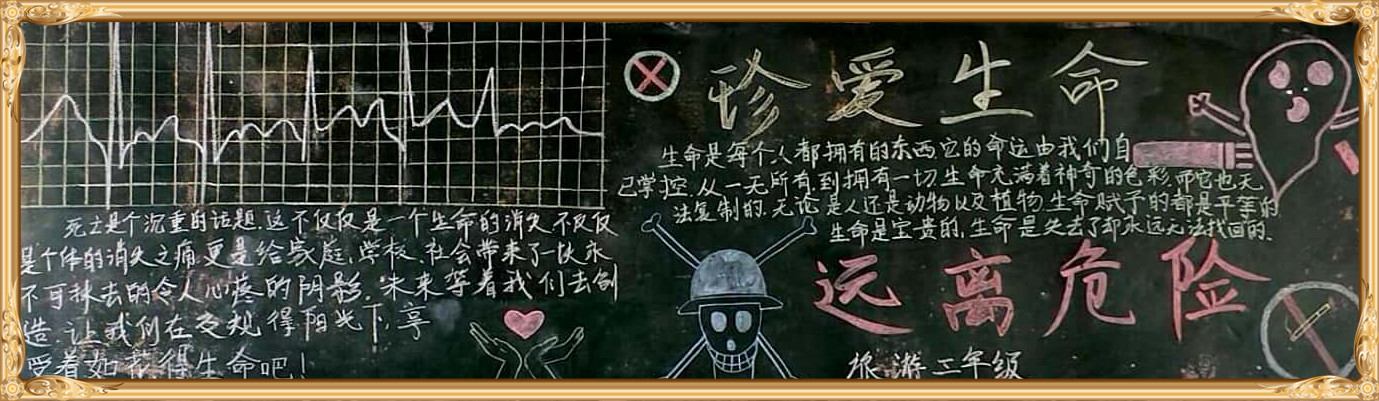 死亡是个沉重的话题.这不仅仅是一个生命的消失.不仅仅
是个体的消失之痛.更是给家庭.学校.社会带来了一块永
不可抹去的令人心疼的阴影.未来等着我们去创
造.让我们在友规得阳光下.享
受着如花得生命吧!
珍爱生命
生命是每个人都拥有的东西.它的命运由我们自
己掌控.从一无所有.到拥有一切.生命充满着神奇的色彩.而它也无
法复制的.无论是人还是动物以及植物.生命赋予的都是平等的
生命是宝贵的.生命是失去了却永远无法找回的.
远离危险
旅游二年级